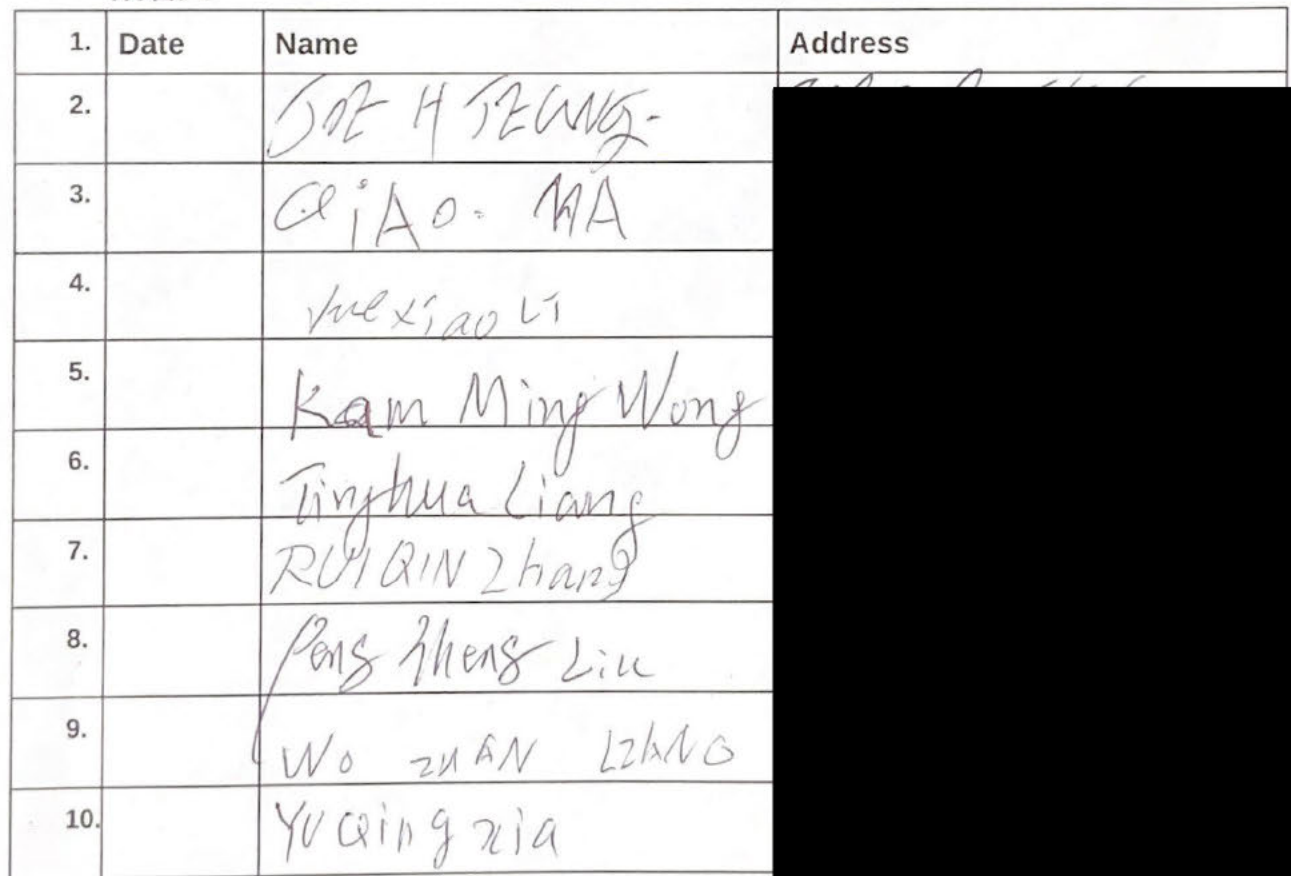 1. Date Name Address
2. JOE H TZEUNG-
3. QiAO. MA
4. Yue xiao Li
5. Kam Ming Wong
6. Tinghua Liang
7. RUI QIN Zhang
8. Peng Zheng Liu
9. WO ZUAN
10. YU Qing xia